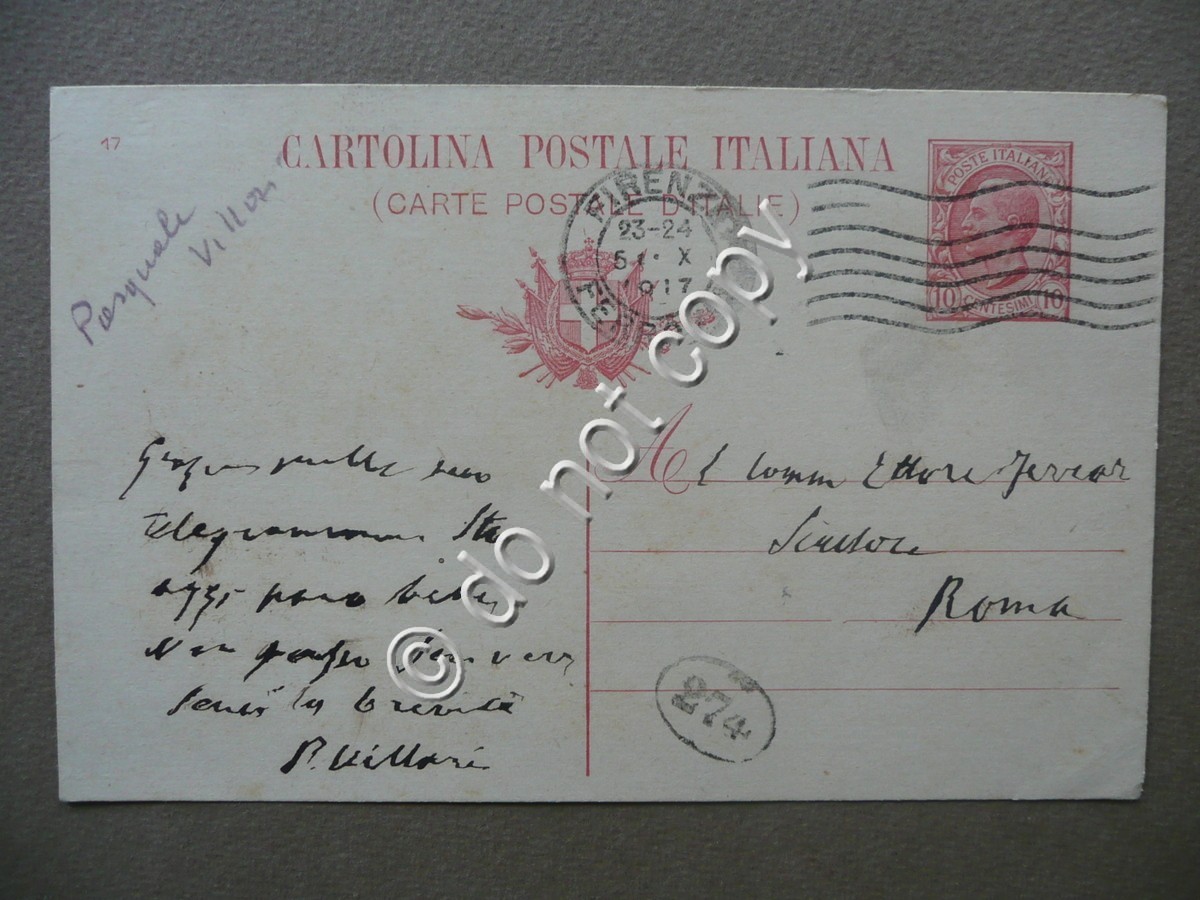 17
CARTOLINA POSTALE ITALIANA
(CARTE POSTALE D'ITALIE)
POSTE ITALIANE
10 CENTESIMI 10
FIRENZE
23-24
5 X
1917
Pasquale
Villari
telegramma Sta
oggi poco bene
Non posso scrivere
Scusi la brevità
P. Villari
Al Comm Ettore Ferrari
Scultore
Roma
274
© do not copy